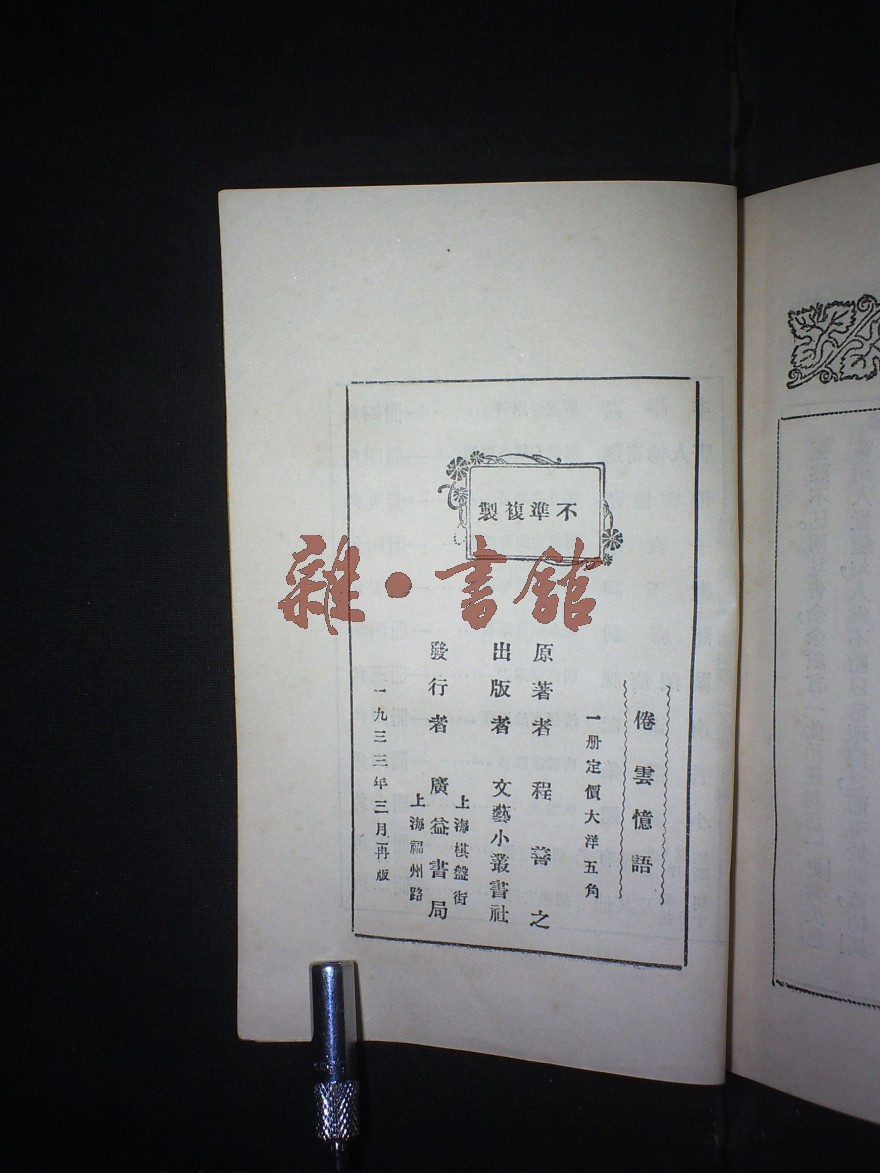 不準複製
雜·書館
倦雲憶語
一册定價大洋五角
原著者 程善之
出版者 文藝小叢書社
上海棋盤街
發行者 廣益書局
上海福州路
一九三三年三月再版